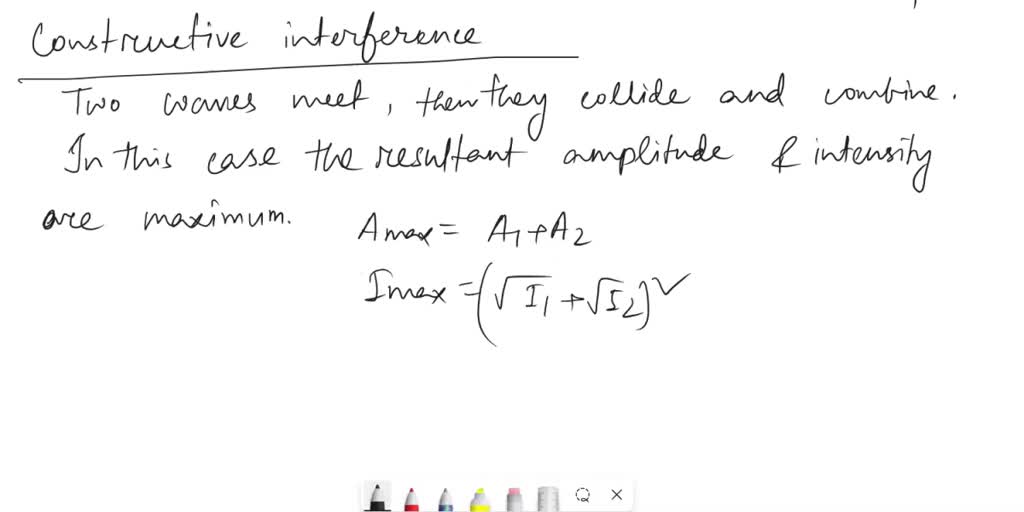 Constructive interference
Two waves meet, then they collide and combine.
In this case the resultant amplitude & intensity
are maximum. Amax = A1+A2
Imax = (√I1 + √I2)²